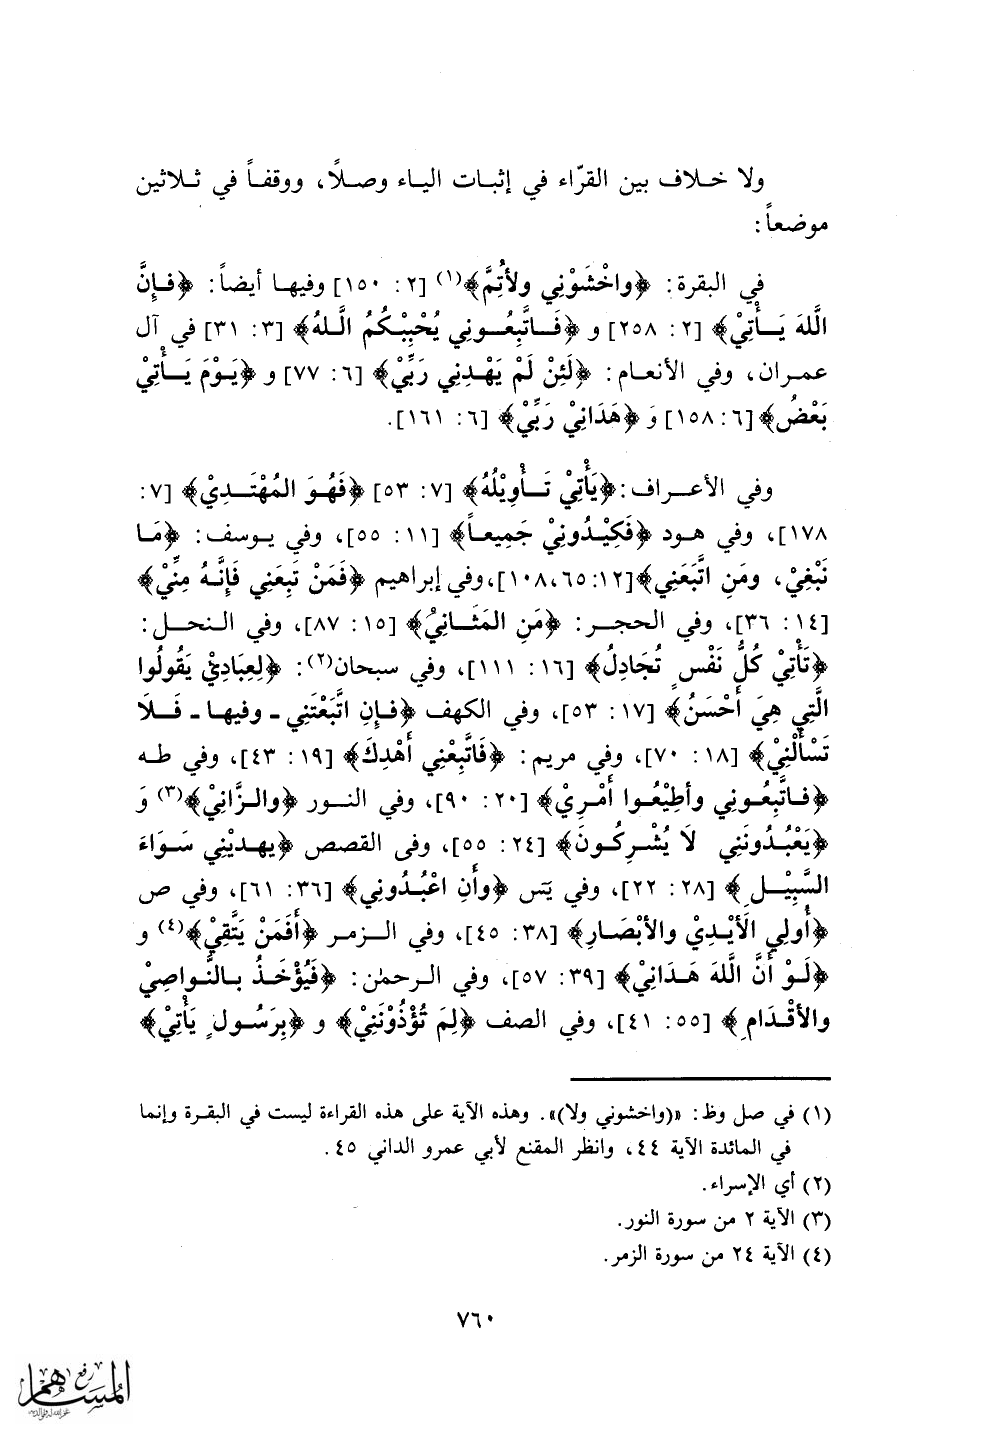 ولا خلاف بين القرّاء في إثبات الياء وصلًا، ووقفاً في ثلاثين
موضعاً:
في البقرة: ﴿واخْشَوْنِي ولأتِمَّ﴾(١) [٢: ١٥٠] وفيها أيضاً: ﴿فإِنَّ
اللَّهَ يَأْتِيْ﴾ [٢: ٢٥٨] و ﴿فَاتَّبِعُوني يُحْبِبْكُمُ اللهُ﴾ [٣: ٣١] في آل
عمران، وفي الأنعام: ﴿لَئِنْ لَمْ يَهْدِنِي رَبِّيْ﴾ [٦: ٧٧] و ﴿يَوْمَ يَأْتِيْ
بَعْضُ﴾ [٦: ١٥٨] وَ ﴿هَدَانِيْ رَبِّيْ﴾ [٦: ١٦١].
وفي الأعراف: ﴿يَأْتِيْ تَأْوِيْلُهُ﴾ [٧: ٥٣] ﴿فَهُوَ المُهْتَدِيْ﴾ [٧:
١٧٨]، وفي هود ﴿فَكِيْدُونِيْ جَمِيعاً﴾ [١١: ٥٥]، وفي يوسف: ﴿مَا
نَبْغِيْ، ومَنِ اتَّبَعَنِي﴾ [١٢: ٦٥، ١٠٨]، وفي إبراهيم ﴿فَمَنْ تَبِعَنِي فَإِنَّهُ مِنِّيْ﴾
[١٤: ٣٦]، وفي الحجر: ﴿مَنِ المَثَانِيْ﴾ [١٥: ٨٧]، وفي النحل:
﴿تَأْتِيْ كُلُّ نَفْسٍ تُجَادِلُ﴾ [١٦: ١١١]، وفي سبحان(٢): ﴿لِعِبَادِيْ يَقُولُوا
الَّتِي هِيَ أَحْسَنُ﴾ [١٧: ٥٣]، وفي الكهف ﴿فَإِنِ اتَّبَعْتَنِي - وفيها - فَلَا
تَسْأَلْنِيْ﴾ [١٨: ٧٠]، وفي مريم: ﴿فَاتَّبِعْنِي أَهْدِكَ﴾ [١٩: ٤٣]، وفي طه
﴿فاتَّبِعُوني وأطِيْعُوا أَمْرِيْ﴾ [٢٠: ٩٠]، وفي النور ﴿والزَّانِيْ﴾(٣) وَ
﴿يَعْبُدُونَنِي لَا يُشْرِكُونَ﴾ [٢٤: ٥٥]، وفى القصص ﴿يهدِيْنِي سَوَاءَ
السَّبِيْلِ﴾ [٢٨: ٢٢]، وفي يَس ﴿وأَنِ اعْبُدُونِي﴾ [٣٦: ٦١]، وفي ص
﴿أُولِي الَأيْدِيْ والأبْصَارِ﴾ [٣٨: ٤٥]، وفي الزمر ﴿أَفَمَنْ يَتَّقِيْ﴾(٤) و
﴿لَوْ أَنَّ اللَّهَ هَدَانِيْ﴾ [٣٩: ٥٧]، وفي الرحمٰن: ﴿فَيُؤْخَذُ بالنَّواصِيْ
والأقْدَامِ﴾ [٥٥: ٤١]، وفي الصف ﴿لِمَ تُؤْذُوْنَنِيْ﴾ و ﴿بِرَسُولٍ يَأْتِيْ﴾
(١) في صل وظ: «(واخشوني ولا)». وهذه الآية على هذه القراءة ليست في البقرة وإنما
في المائدة الآية ٤٤، وانظر المقنع لأبي عمرو الداني ٤٥.
(٢) أي الإسراء.
(٣) الآية ٢ من سورة النور.
(٤) الآية ٢٤ من سورة الزمر.
٧٦٠
رفع
المساهم